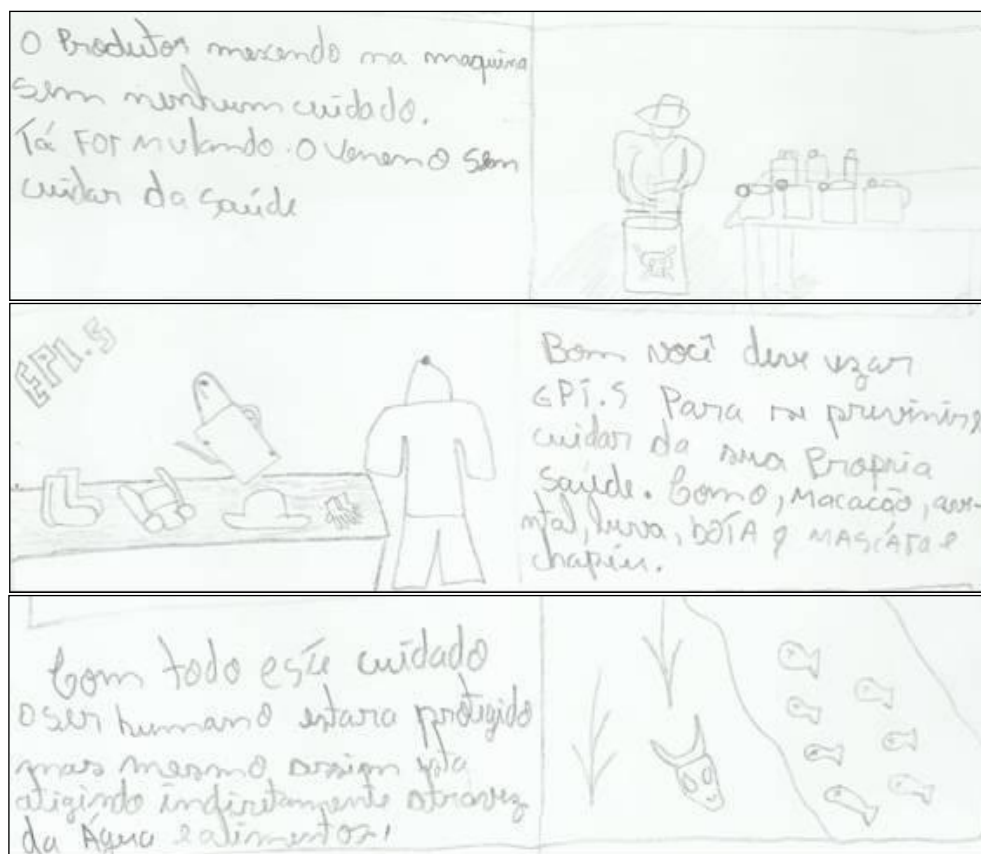 O Produtor mexendo na maquina
sem nenhum cuidado.
Tá Formulando o veneno sem
cuidar da saúde
EPI.S
Bom você deve uzar
EPI.S Para se previnir e
cuidar da sua Propria
saúde. Como, Macacão, ave-
ntal, luva, BOTA e MASCÁRA e
chapéu.
Com todo este cuidado
o ser humano estara protigido
mas mesmo assim esta
atigindo indiretamente atravez
da Água e alimentos!